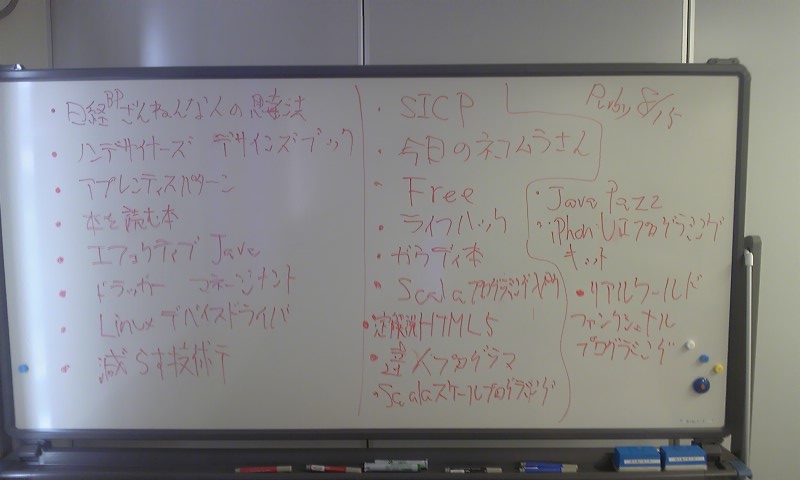 ・日経BPざんねんな人の思考法
・ノンデザイナーズ デザインズブック
・アプレンティスパターン
・本を読む本
・エフェクティブ Java
・ドラッガー マネージメント
・Linux デバイスドライバ
・減らす技術
・SICP
・今日のネコムラさん
・Free
・ライフハック
・ガウディ本
・Scalaプログラミング入門
・HTML5
・プログラマ
・Scalaスケールプログラミング
Ruby 8/15
・Java Pazz
・iPhon UIプログラミング
キット
・リアルワールド
ファンクショナル
プログラミング